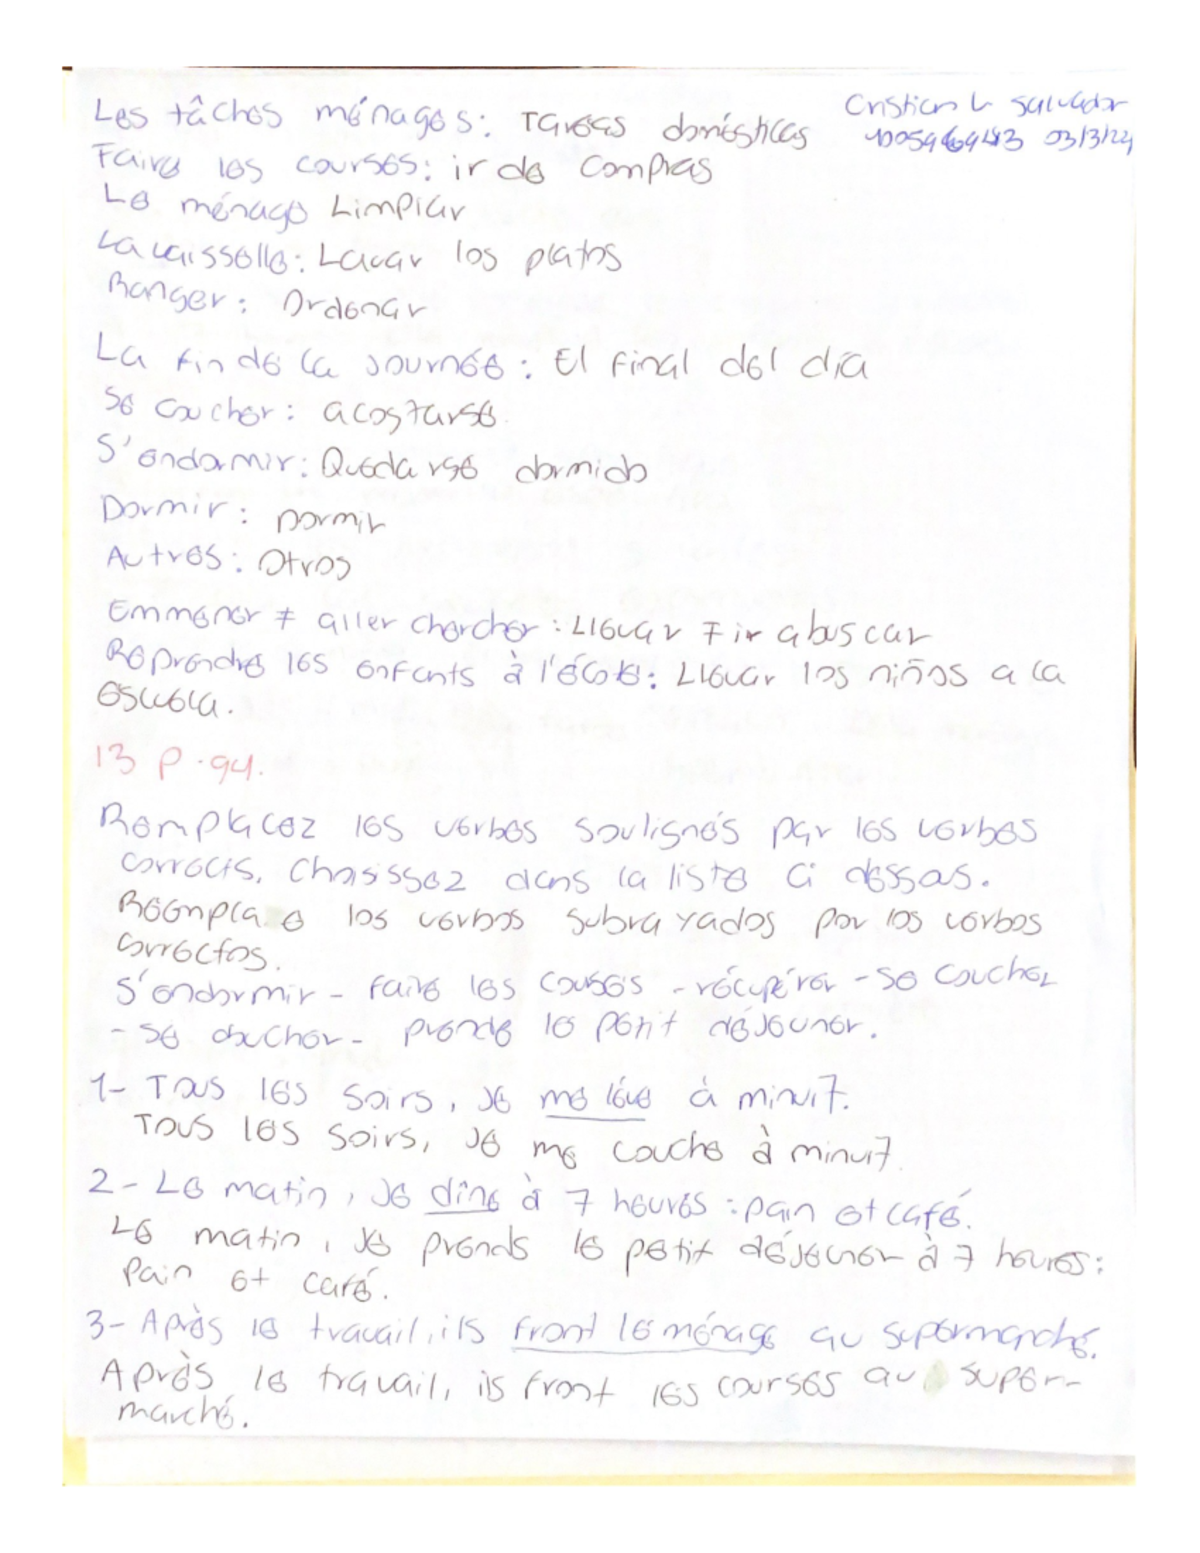 Les tâches ménages: Tareas domésticas
Cristian L Salvador
03/3/24
Faire les courses: ir de Compras
Le ménage Limpiar
La vaisselle: Lavar los platos
Ranger: Ordenar
La fin de la Journée: El final del día
Se coucher: acostarse.
S'endormir: Quedarse dormido
Dormir: Dormir
Autres: Otros
Emmener ≠ aller chercher: Llevar ≠ ir a buscar
Reprendre les enfants à l'école: Llevar los niños a la
escuela.
13 P.94.
Remplacez les verbes soulignés par les verbes
corrects. Choisissez dans la liste ci dessas.
Reemplace los verbos subrayados por los verbos
correctos.
S'endormir - faire les couses - récupérer - Se coucher
- se doucher - prende le petit déjeuner.
1- Tous les soirs, Je me lève à minuit.
Tous les soirs, Je me couche à minuit.
2- Le matin, Je dîne à 7 heures: pain et café.
Le matin, Je prends le petit déjeuner à 7 heures:
Pain et café.
3- Après le travail, ils front le ménage au supermarché.
Après le travail, ils front les courses au super-
marché.